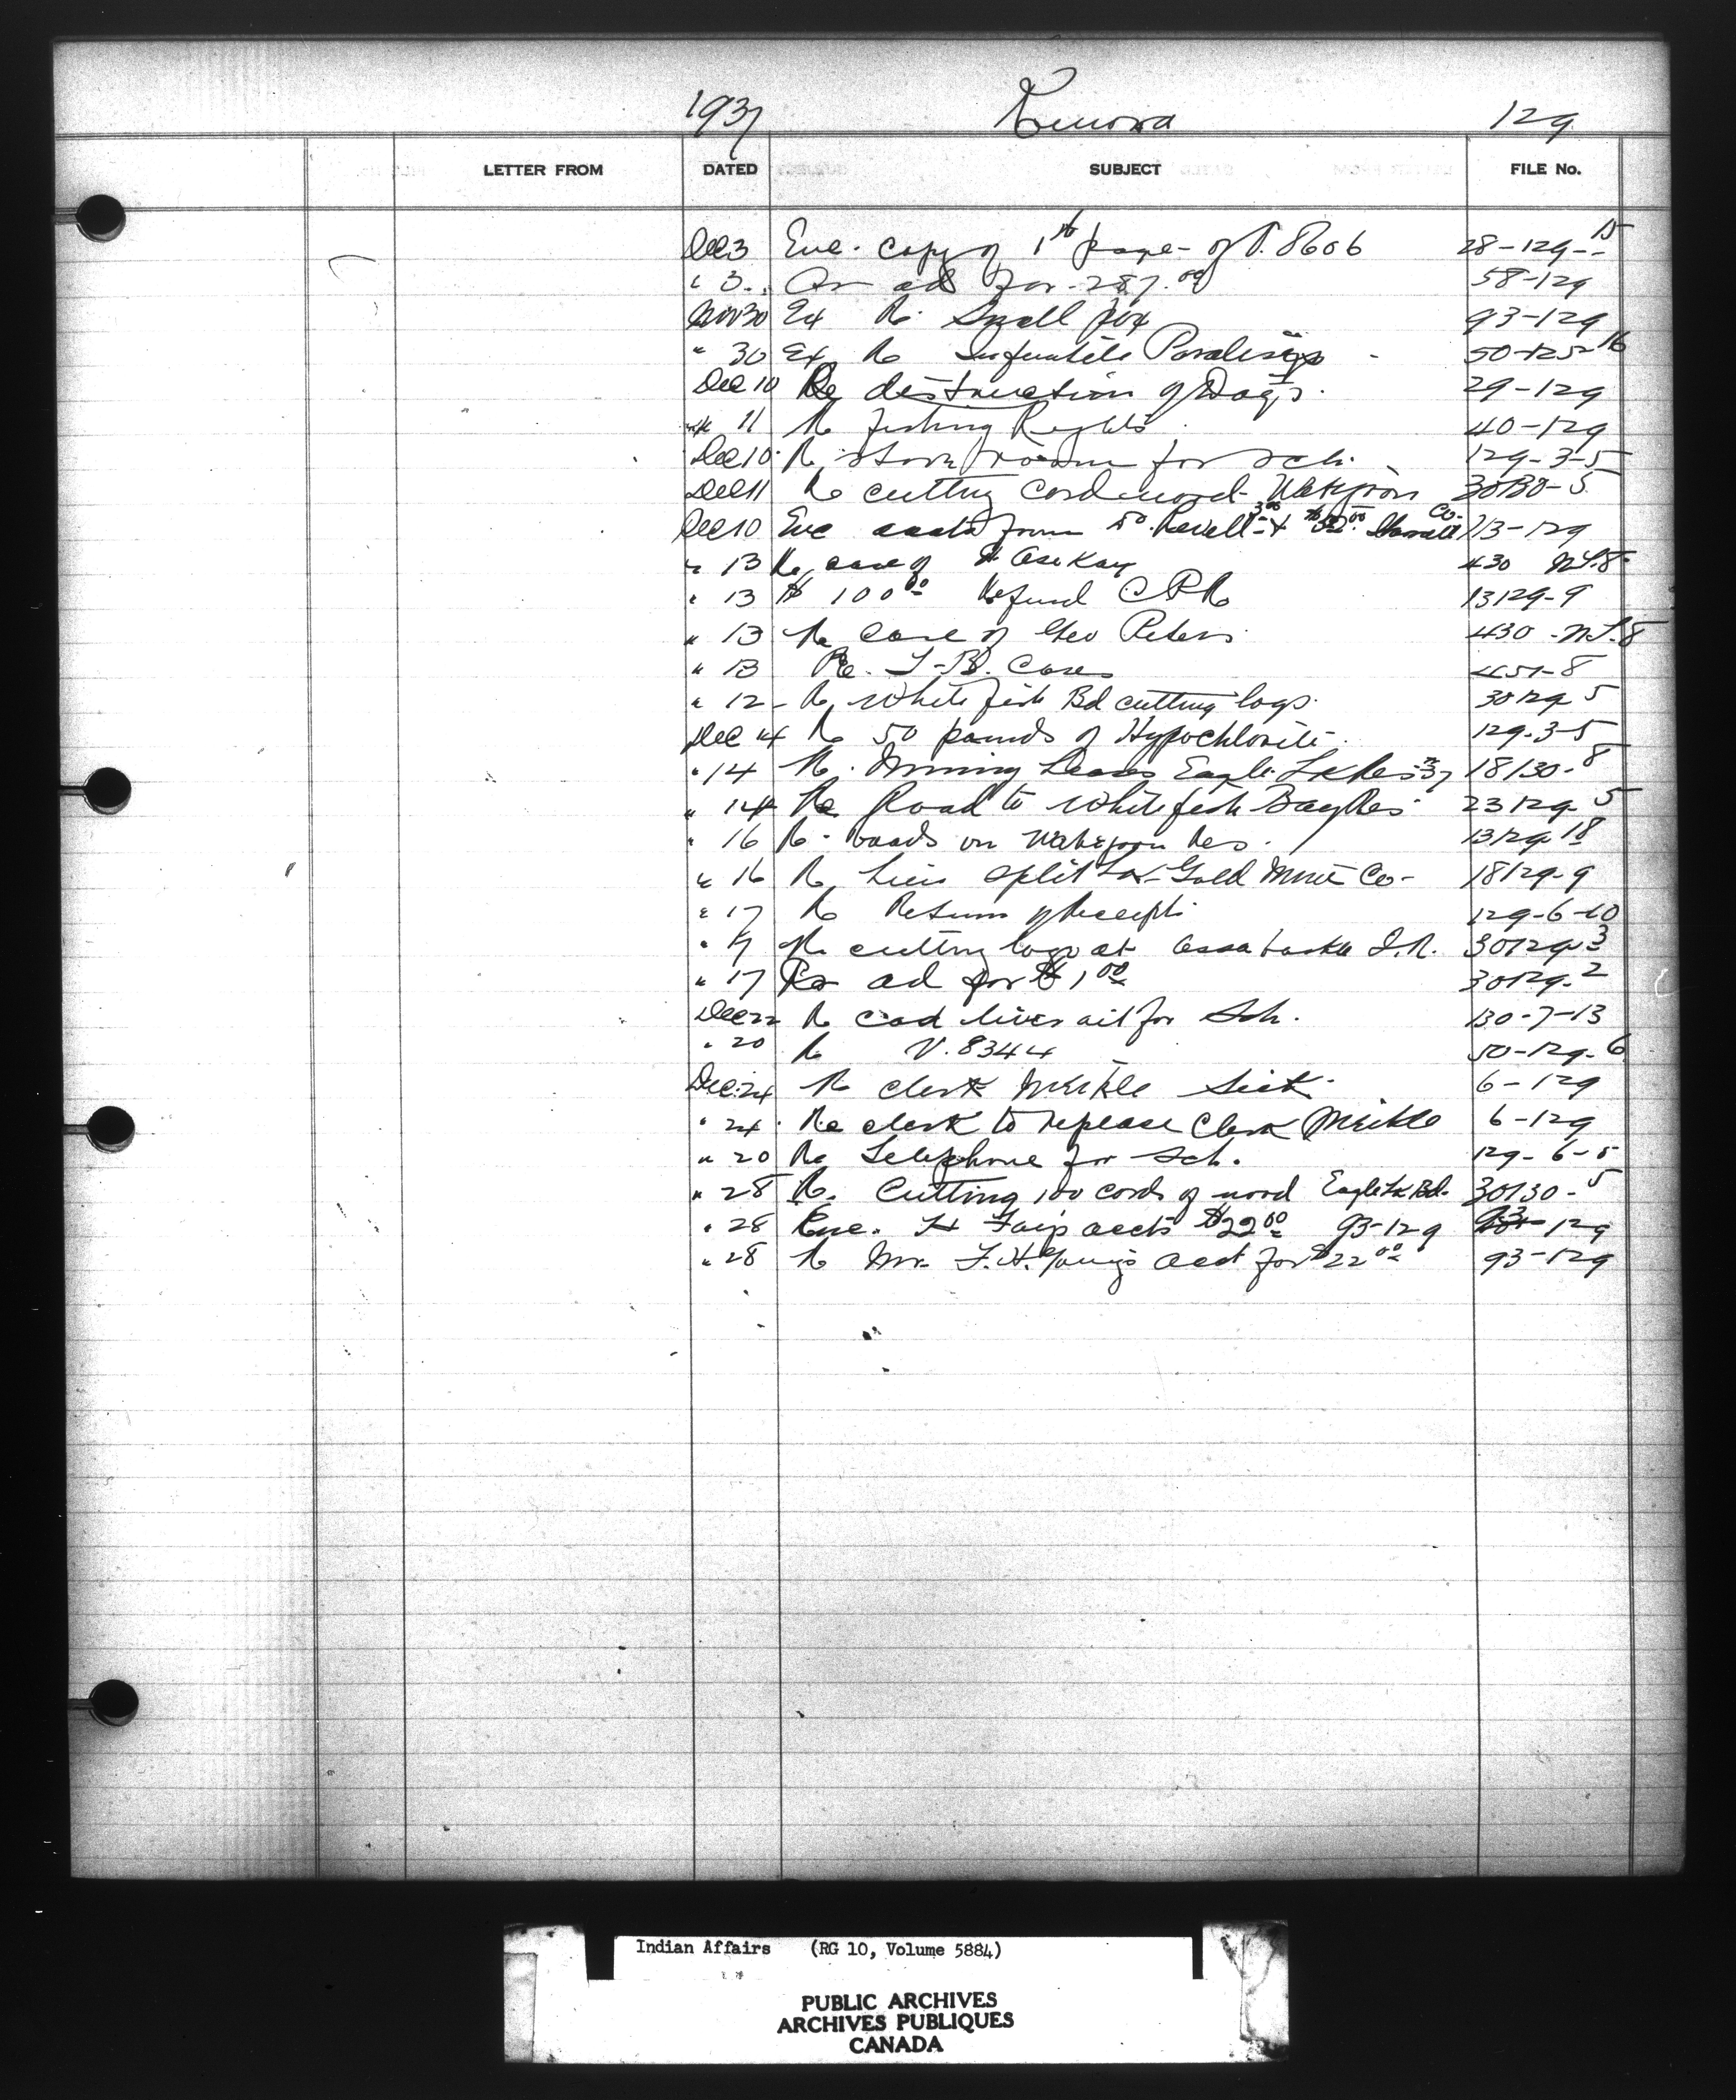 1937 Kenora 129
LETTER FROM DATED SUBJECT FILE No.
Dec 3 Enc. copy of 1st page of V. 8606 28-129-15
" 3 for 287.00 58-129
Nov 30 Ex Re Small pox 93-129
" 30 Ex Re Infantile Paralisys 50-125-16
Dec 10 Re destruction of Dogs. 29-129
" 11 Re fishing Rights 40-129
Dec 10 Re store room for sch. 129-3-5
Dec 11 Re cutting cordwood Wabigoon 30130-5
Dec 10 Enc accts from Revell & Co. 113-129
" 13 Re case of 430
" 13 $100.00 Refund CPR 13129-9
" 13 Re case of Geo Peters 430
" 13 Re. T-B. Cases 451-8
" 12 Re White fish Bd cutting logs. 30129 5
Dec 14 Re 50 pounds of Hypochlorite. 129-3-5
" 14 Re. Mining Leases Eagle Lk Res 18130-8
" 14 Re Road to Whitefish Bay Res 23129-5
" 16 Re roads on Wabigoon Res. 13129 18
" 16 Re Lien Split Lk Gold Mine Co- 18129-9
" 17 Re Return of Receipts 129-6-10
" Re cutting logs at Assabaska I.R. 30129-3
" 17 Re ad for $1.00 30129-2
Dec 22 Re cod liver oil for Sch. 130-7-13
" 20 Re V. 8344 50-129-6
Dec 24 Re clerk Meikle Sick 6-129
" 24 Re clerk to replease Clerk Meikle 6-129
" 20 Re Telephone for Sch. 129-6-5
" 28 Re. Cutting 100 cords of wood Eagle Lk Bd. 30130-5
" 28 Enc. accts $22.00 93-129 93-129
" 28 Re Mr. F.H. acct for $22.00 93-129
Indian Affairs (RG 10, Volume 5884)
PUBLIC ARCHIVES
ARCHIVES PUBLIQUES
CANADA